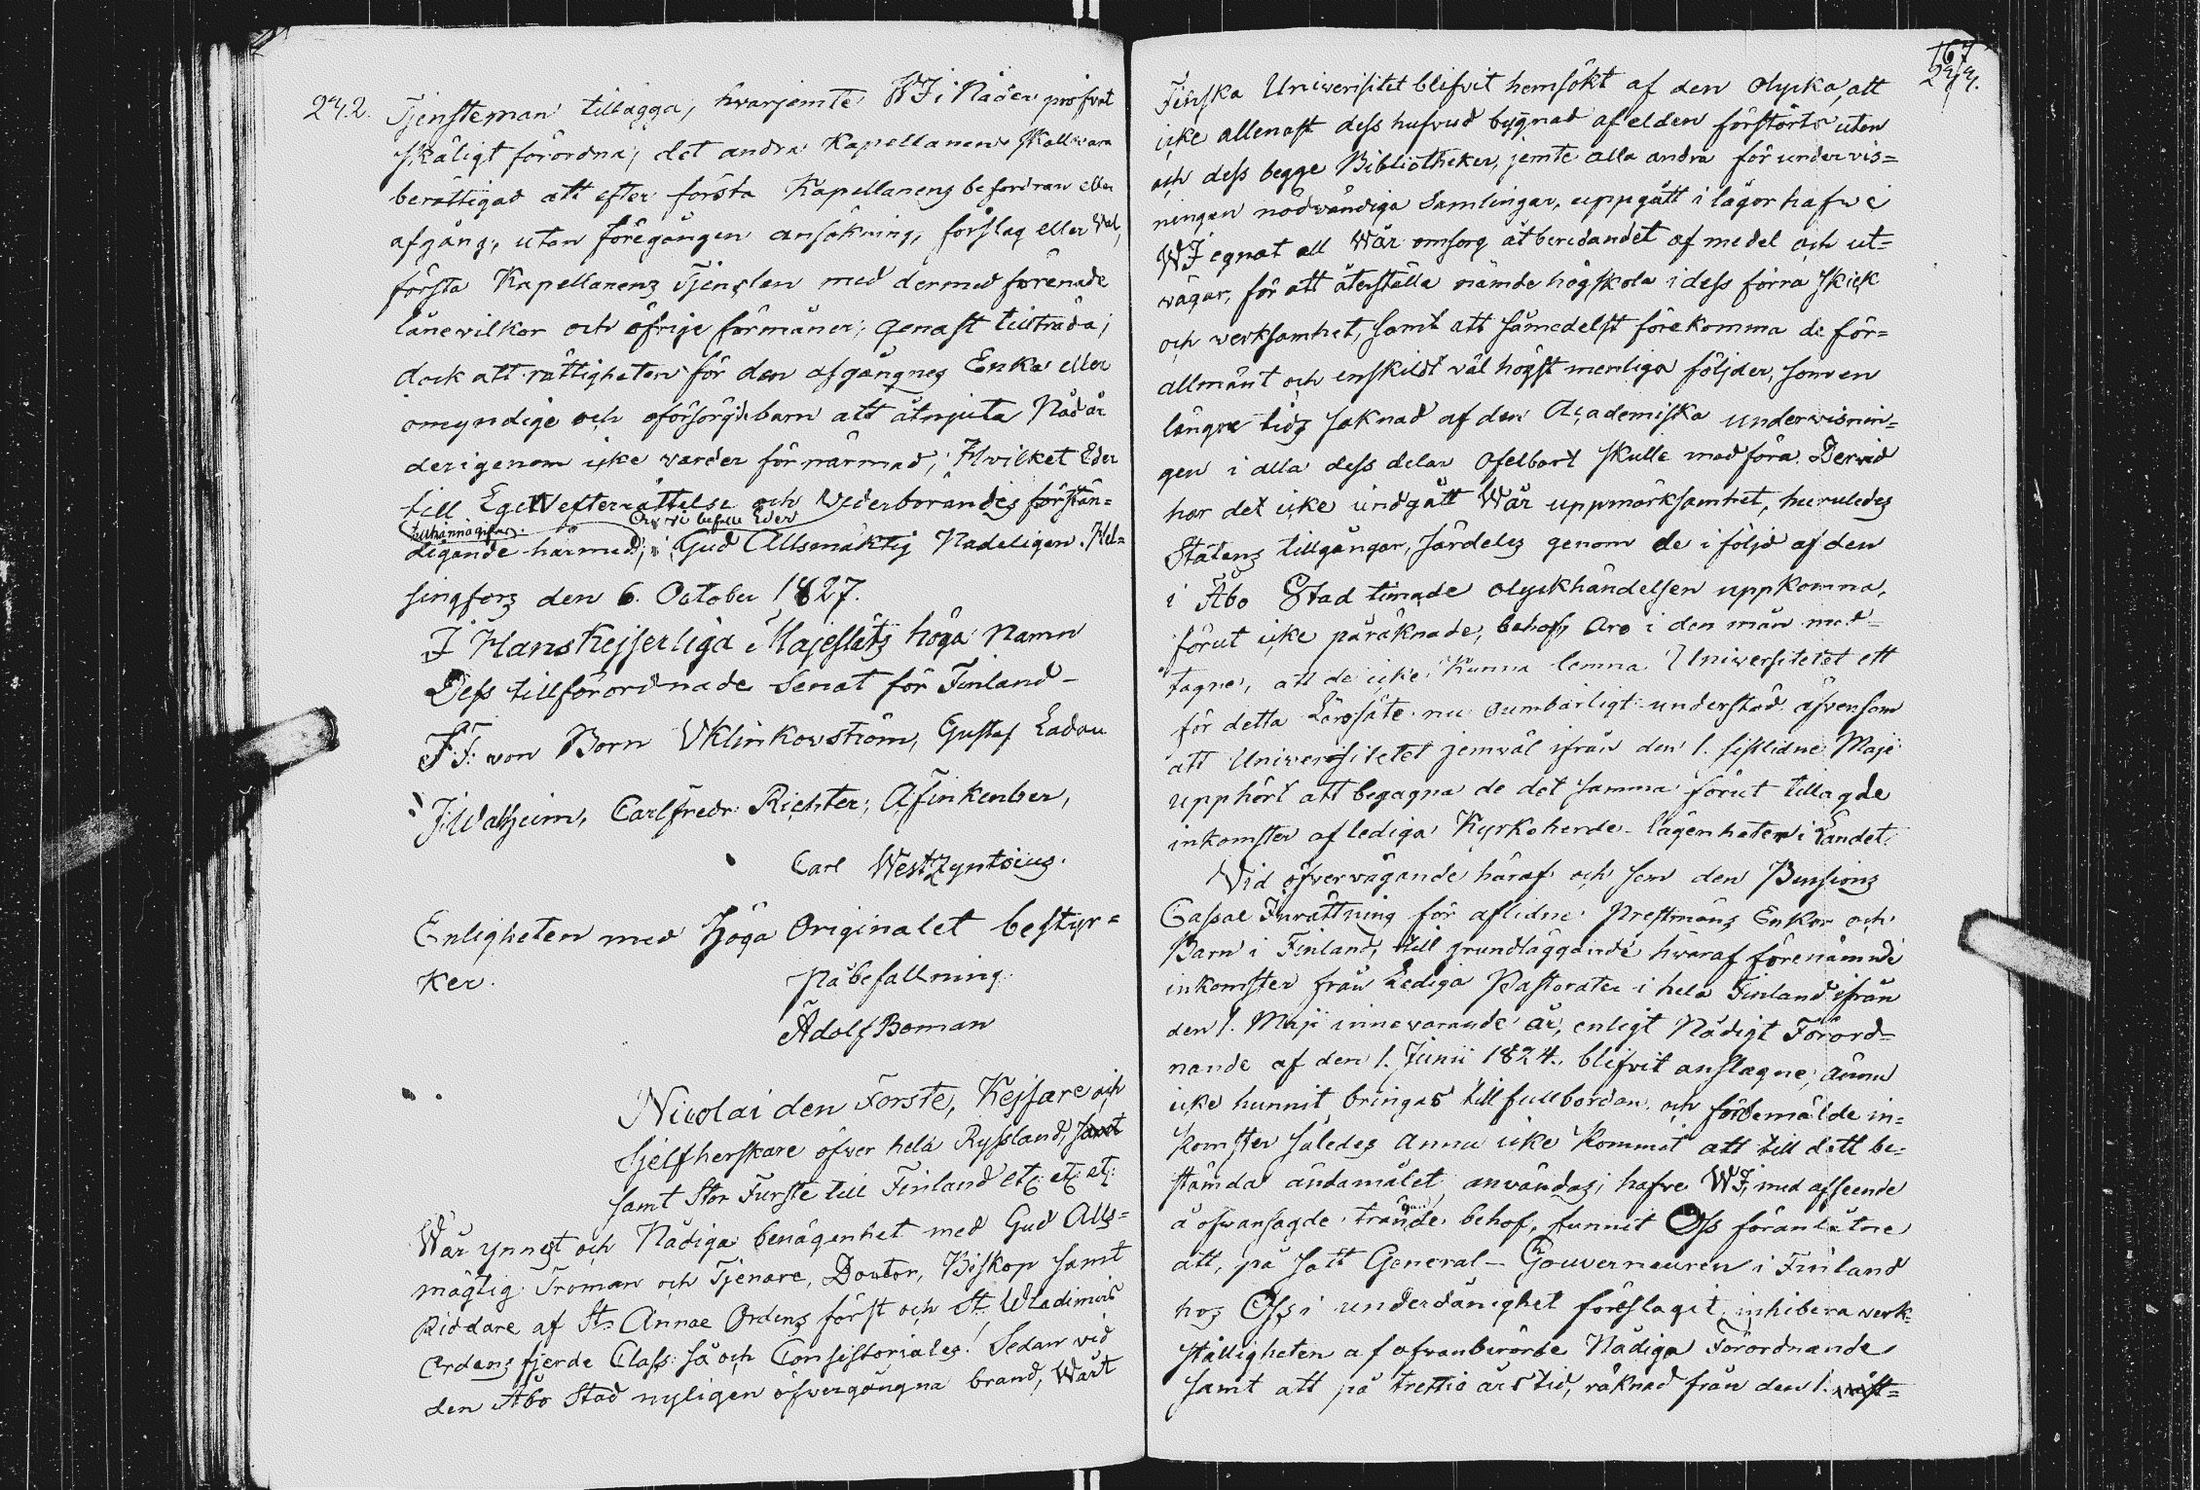 242. Tjensteman tillägga, hvarjemte WI i Nåder pröfvat
skäligt förordna, det andra Kapellanen skall vara
berättigad att efter första Kapellanens befordran eller
afgång, utan föregången ansökning, förslag eller Val,
första Kapellanens Tjensten med dermed förenade
lönevilkor och öfrige förmåner, genast tillträda;
dock att rättigheten för den afgångnes Enka eller
omyndige och oförsörgde barn att åtnjuta Nådår
derigenom icke varder förnärmad; Hvilket Eder
till Egit Vefterrättelse och Wederbörandes förstän=
kunnagifvas. Och vi befalle Eder
digande härmed, i Gud Allsmäktig Nadeligen. Hel=
singfors den 6. October 1827.
I Hans Kejserliga Majestäts höga Namn
Dess tillförordnade Senat för Finland-
F.F. von Born V Klinkovström, Gustaf Ladau
J. Walheim, Carl Fredr: Richter, A Finkenber,
Carl West Zyntsius.
Enligheten med höga Originalet bestyr=
ker. På befallning
Adolf Boman
Nicolai den Förste, Kejsare och
Sjelfherskare öfver hela Ryssland, samt
samt Stor Furste till Finland etc. etc. etc.
Wår ynnest och Nådiga benägenhet med Gud Alls=
mägtig Troman och Tjenare, Doctor, Biskop samt
Riddare af St. Annae Ordens först och St. Wladimirs
Ordens fjerde Class så och Consistoriales! Sedan vid
den Åbo Stad nyligen öfvergångna brand, Wårt
167
244.
Finska Universitet blifvit hemsökt af den olycka, att
icke allenast dess hufvud bygnad af elden förstörts utan
och dess begge Bibliotheker, jemte alla andra för undervis=
ningen nödvändiga Samlingar, uppgått i lågor hafve
WI egnat all Wår omsorg åt beredandet af medel och ut=
vägar, för att återställa nämde högskola i dess förra skick
och verksamhet, samt att såmedelst förekomma de för=
allmänt och enskildt väl högst menliga följder, som en
längre tids saknad af den Academiska underwisnin=
gen i alla dess delar ofelbart skulle medföra. Dervid
har det icke undgått Wår uppmärksamhet, huruledes
Statens tillgångar, särdeles genom de i följd af den
i Åbo Stad timade olyckhändelsen uppkomna,
förut icke påräknade, behof, äro i den mån med=
tagne, att de icke kunna lemna Universitetet ett
för detta Lärosäte nu oumbärligt understöd äfvensom
att Universitetet jemväl ifrån den 1. sistlidne Maji
upphört att begagna de det samma förut tillagde
inkomster af lediga Kyrkoherde-lägenheter i Landet.
Vid öfvervägande häraf och som den Pensions
Cassae Inrättning för aflidne Prestmäns Enkor och
Barn i Finland, till grundläggande hvaraf förenämnde
inkomster från Lediga Pastorater i hela Finland ifrån
den 1. Maji innevarande år, enligt Nådigt Förord=
nande af den 1. Junii 1824. blifvit anslagne, ännu
icke hunnit bringas till fullbordan, och förbemälde in=
komster således ännu icke kommit att till dett be=
stämda ändamålet användas; hafve WI, med afseende
å ofvansagde trängande behof, funnit Oss föranlåtne
att, på sätt General-Gouverneuren i Finland
hos Oss i underdånighet föreslagit, inhibera verk=
ställigheten af ofvanberörde Nådiga Förordnande
samt att på trettio års tid, räknad från den 1. näst=